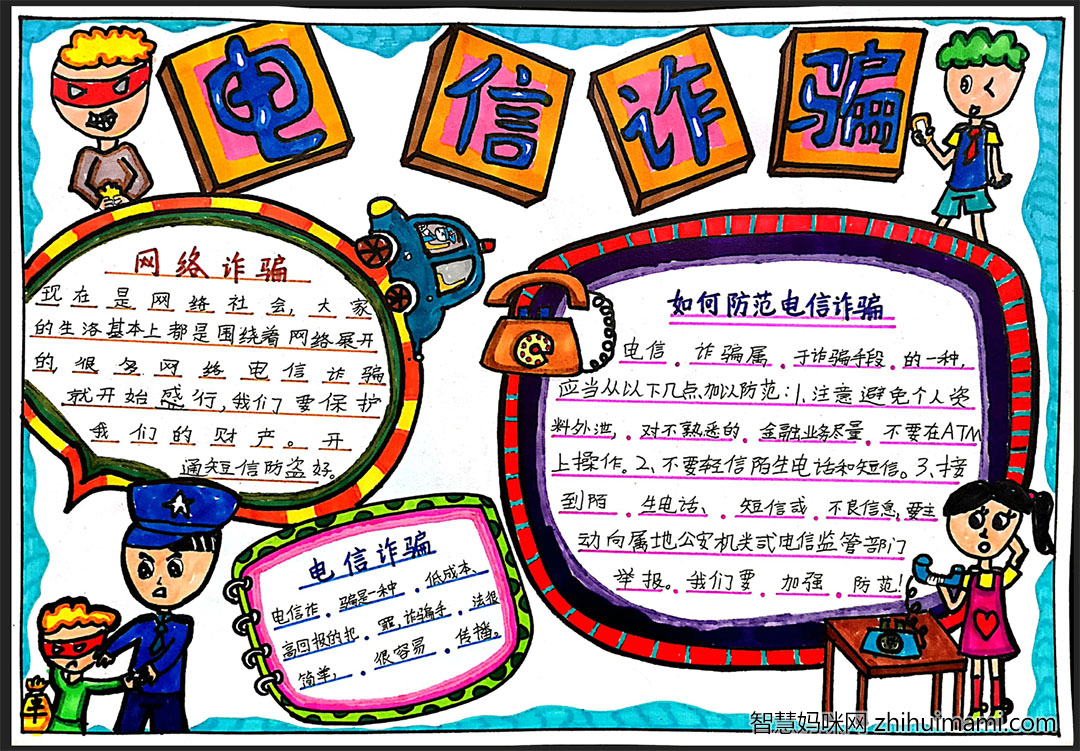 电信诈骗
网络诈骗
现在是网络社会,大家
的生活基本上都是围绕着网络展开
的,很多网络电信诈骗
就开始盛行,我们要保护
我们的财产。开
通短信防盗好。
如何防范电信诈骗
电信诈骗属于诈骗手段的一种,
应当从以下几点加以防范:1.注意避免个人资
料外泄,对不熟悉的金融业务尽量不要在ATM
上操作。2、不要轻信陌生电话和短信。3、接
到陌生电话、短信或不良信息,要主
动向属地公安机关或电信监管部门
举报。我们要加强防范!
电信诈骗
电信诈骗是一种低成本、
高回报的犯罪,诈骗手法很
简单,很容易传播。
智慧妈咪网 zhihuimami.com